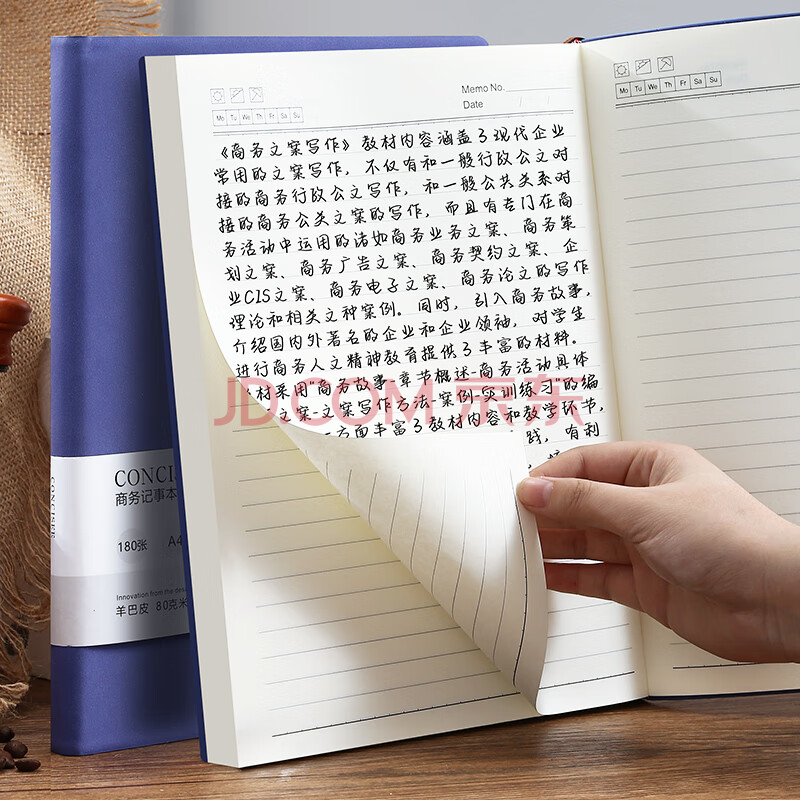 Memo No.
Date / /
Mo Tu We Th Fr Sa Su
《商务文案写作》教材内容涵盖了现代企业
常用的文案写作，不仅有和一般行政公文对
接的商务行政公文写作，和一般公共关系对
接的商务公关文案的写作，而且有专门在商
务活动中运用的诸如商务业务文案、商务策
划文案、商务广告文案、商务契约文案、企
业CIS文案、商务电子文案、商务论文的写作
理论和相关文种案例。同时，引入商务故事，
介绍国内外著名的企业和企业领袖，对学生
进行商务人文精神教育提供了丰富的材料。
材采用"商务故事-章节概述-商务活动具体
文案-文案写作方法-案例-实训练习"的编
方面丰富了教材内容和教学环节，
践，有利
Mo Tu We Th Fr Sa Su
JD.COM 京东
CONCIS
商务记事本
180张 A4
Innovation from the de
羊巴皮 80克米
CONCISER